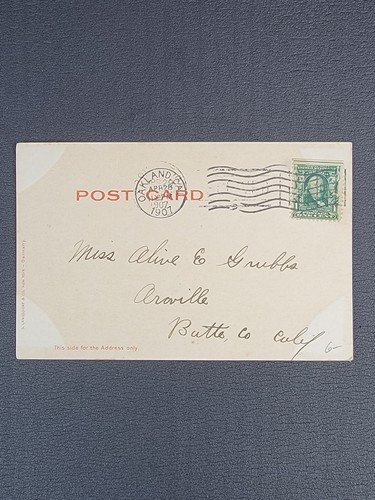 POST CARD
OAKLAND, CAL.
APR 28
1907
Miss Alive E Grubbs
Aroville
Butte, Co Calif
This side for the Address only.
6